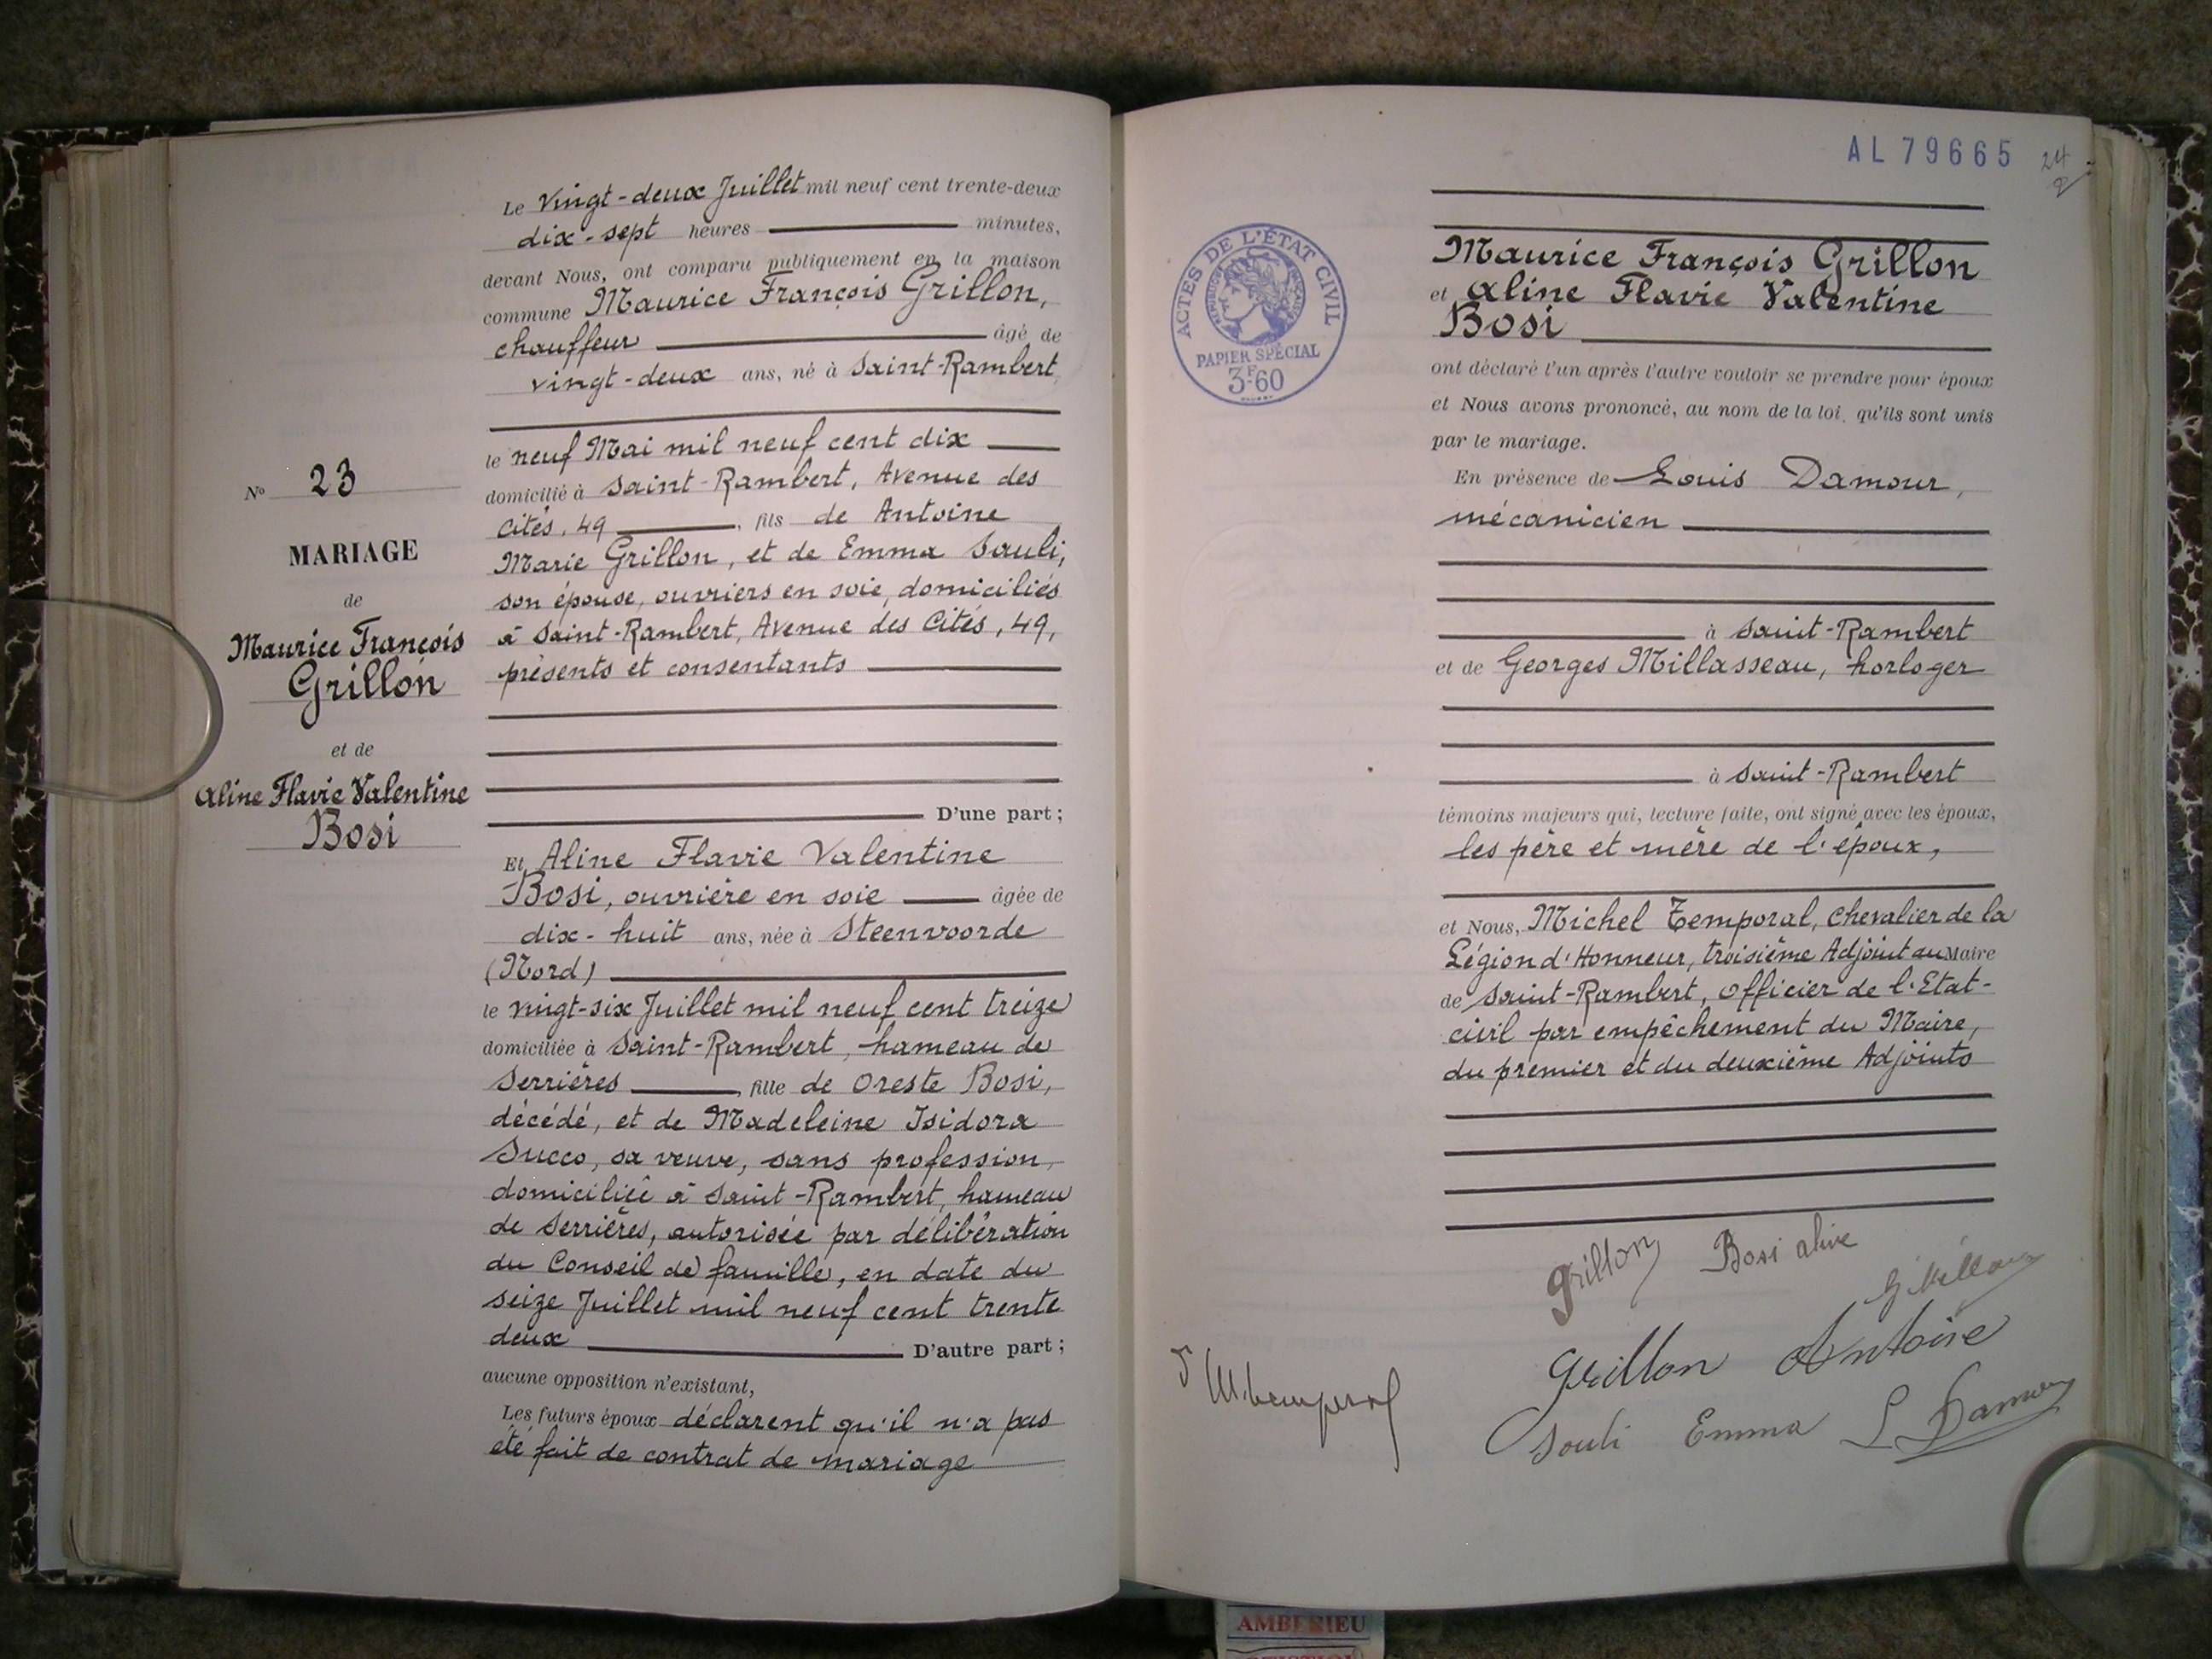 Le vingt-deux Juillet mil neuf cent trente-deux
dix-sept heures minutes,
devant Nous, ont comparu publiquement en la maison
commune Maurice François Grillon,
chauffeur âgé de
vingt-deux ans, né à Saint-Rambert
le neuf Mai mil neuf cent dix
domicilié à Saint-Rambert, Avenue des
Cités, 49, fils de Antoine
Marie Grillon, et de Emma Sauli,
son épouse, ouvriers en soie, domiciliés
à Saint-Rambert, Avenue des Cités, 49,
présents et consentants
D'une part;
Et Aline Flavie Valentine
Bosi, ouvrière en soie âgée de
dix-huit ans, née à Steenvoorde
(Nord)
le vingt-six Juillet mil neuf cent treize
domiciliée à Saint-Rambert, hameau de
Serrières, fille de Oreste Bosi,
décédé, et de Madeleine Isidora
Succo, sa veuve, sans profession,
domiciliée à Saint-Rambert, hameau
de Serrières, autorisée par délibération
du Conseil de famille, en date du
seize Juillet mil neuf cent trente
deux D'autre part;
aucune opposition n'existant,
Les futurs époux déclarent qu'il n'a pas
été fait de contrat de mariage
No 23
MARIAGE
de
Maurice François
Grillon
et de
Aline Flavie Valentine
Bosi
AL79665
24
ACTES DE L'ÉTAT CIVIL
PAPIER SPÉCIAL
3F60
Maurice François Grillon
et Aline Flavie Valentine
Bosi
ont déclaré l'un après l'autre vouloir se prendre pour époux
et Nous avons prononcé, au nom de la loi, qu'ils sont unis
par le mariage.
En présence de Louis Damour,
mécanicien
à Saint-Rambert
et de Georges Millasseau, horloger
à Saint-Rambert
témoins majeurs qui, lecture faite, ont signé avec les époux,
les père et mère de l'époux,
et Nous, Michel Temporal, Chevalier de la
Légion d'Honneur, troisième Adjoint au Maire
de Saint-Rambert, officier de l'Etat-
civil par empêchement du Maire,
du premier et du deuxième Adjoints
Grillon Bosi aline
Grillon Antoine
Souli Emma L Damour
AMBERIEU